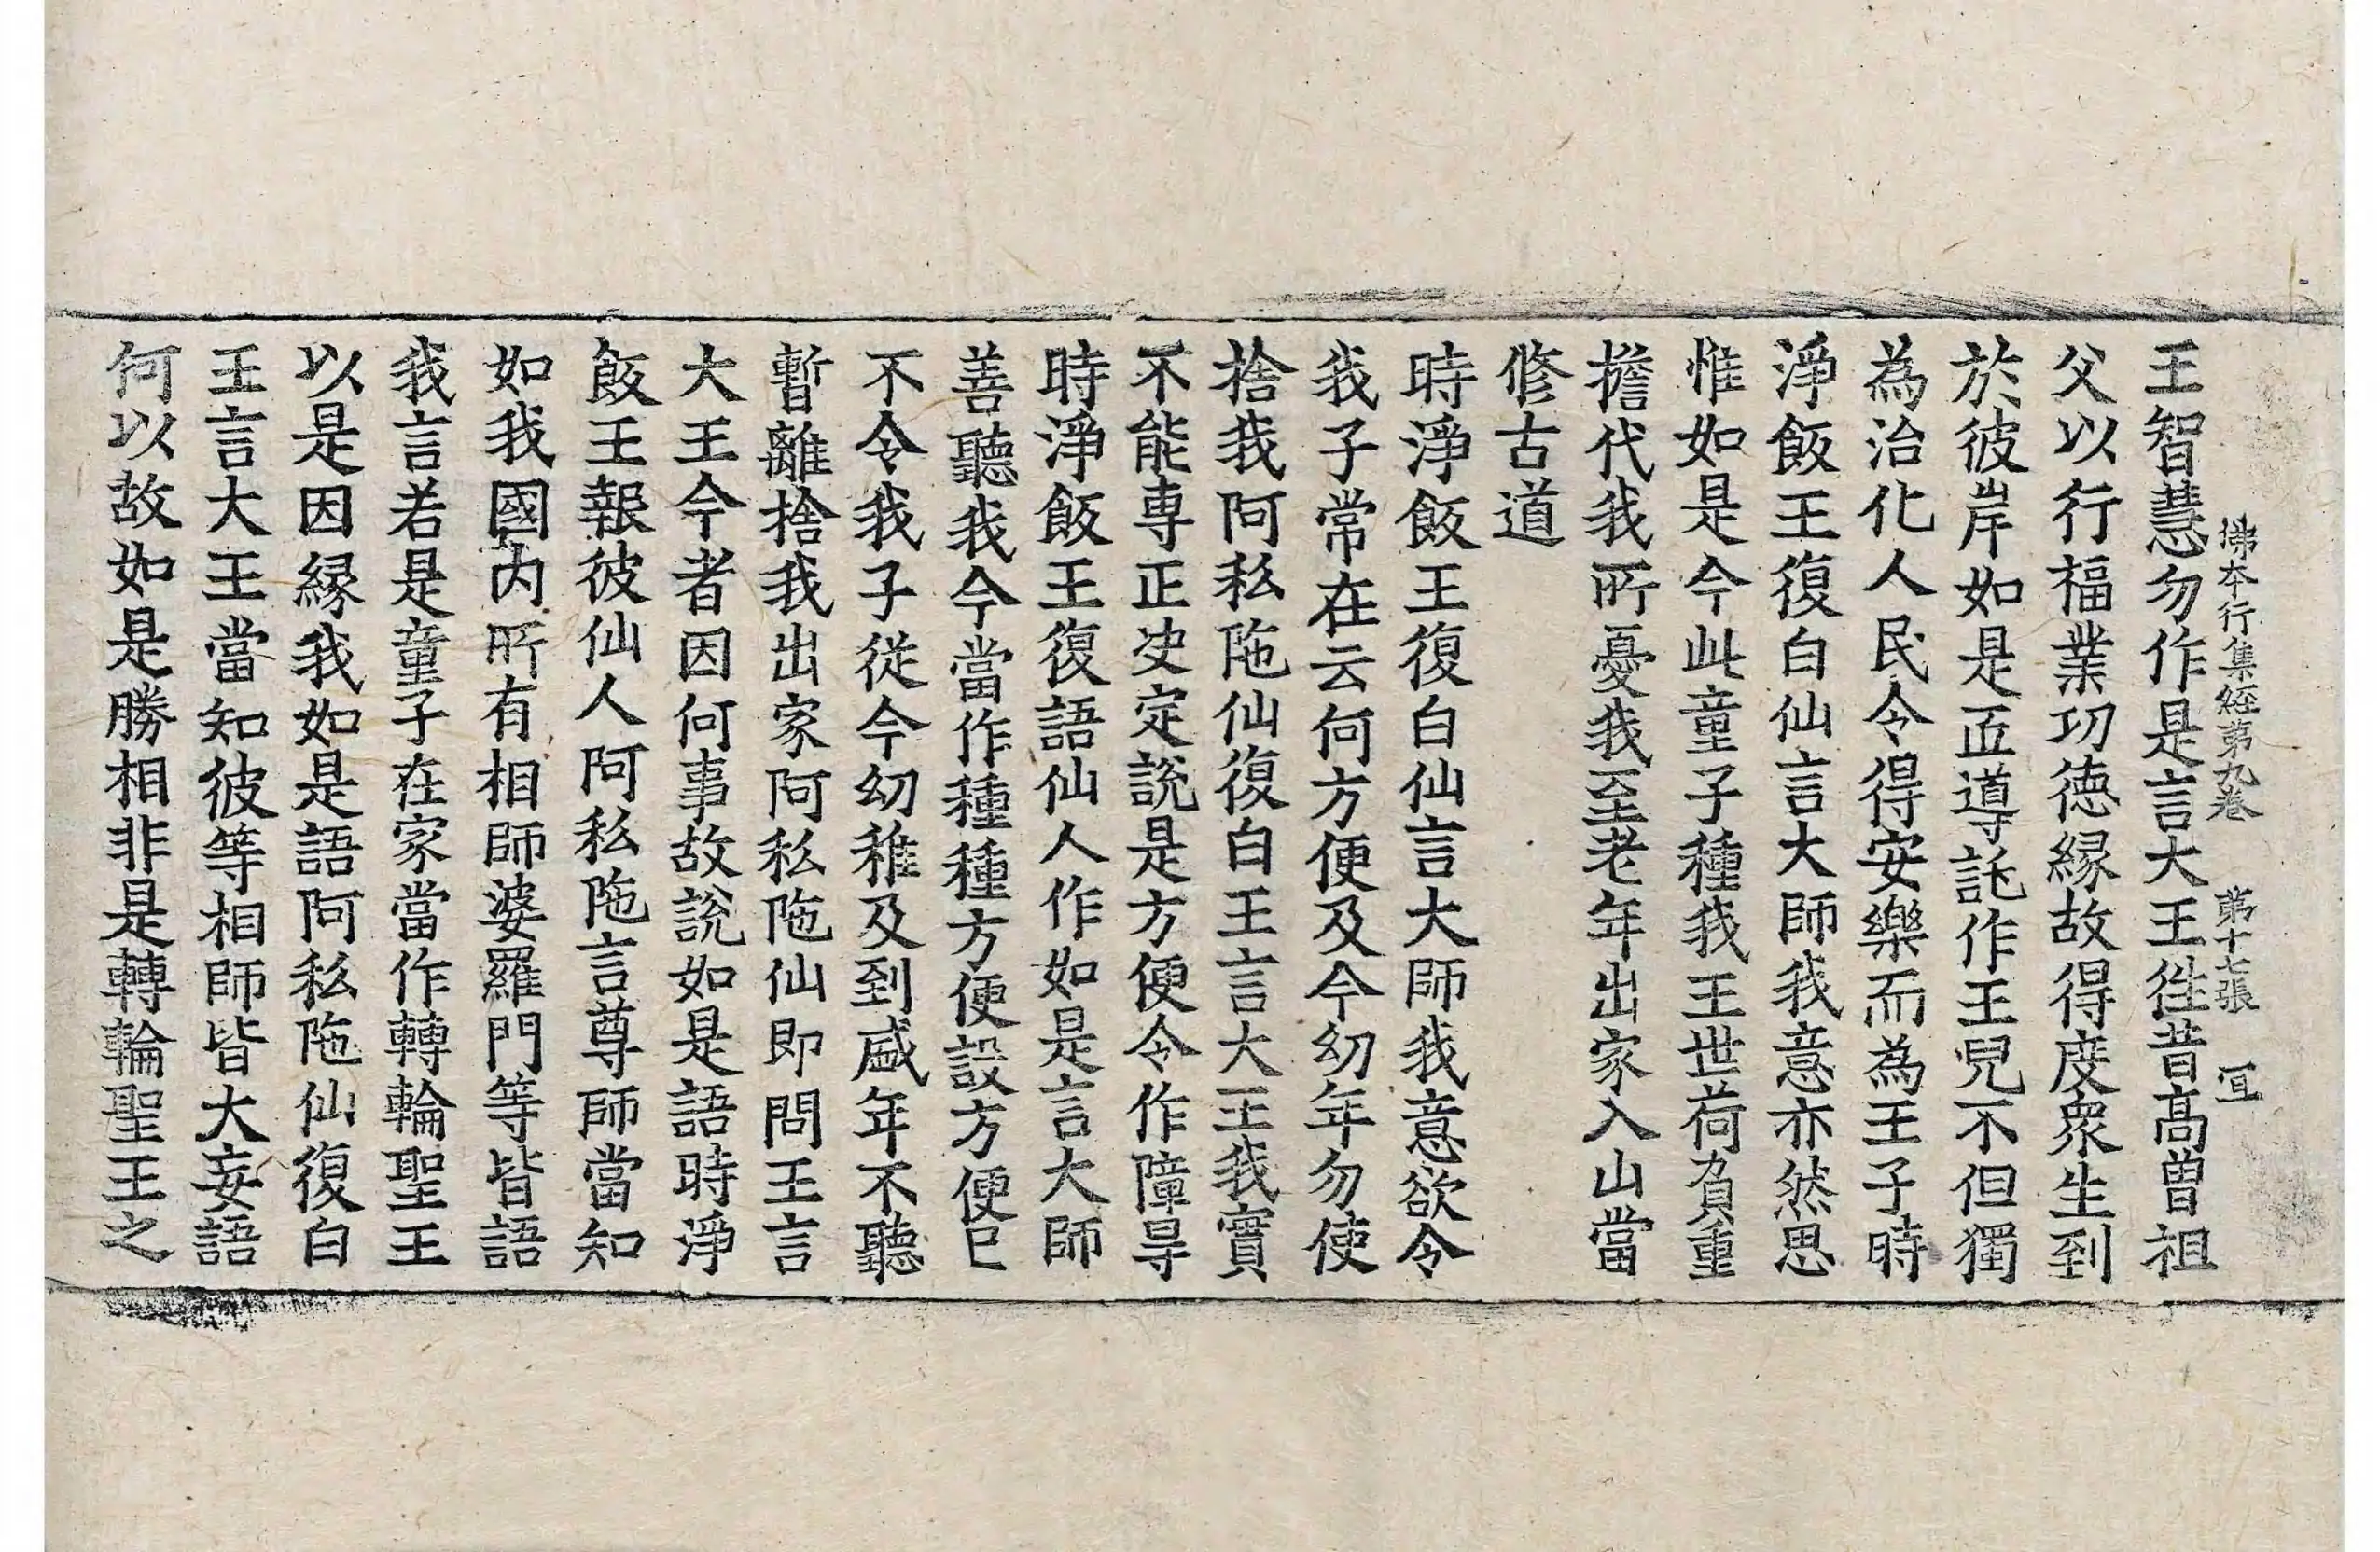 佛本行集經第九卷 第十七張 冝
王智慧勿作是言大王徃昔髙曽祖
父以行福業功徳縁故得度衆生到
於彼岸如是正導託作王兒不但獨
為治化人民令得安樂而為王子時
淨飯王復白仙言大師我意亦然思
惟如是今此童子種我王世荷負重
擔代我所憂我至老年出家入山當
修古道
時淨飯王復白仙言大師我意欲令
我子常在云何方便及今幼年勿使
捨我阿私陁仙復白王言大王我實
不能専正决定說是方便令作障㝵
時淨飯王復語仙人作如是言大師
善聽我今當作種種方便設方便已
不令我子從今幼稚及到盛年不聽
暫離捨我出家阿私陁仙即問王言
大王今者因何事故說如是語時淨
飯王報彼仙人阿私陁言尊師當知
如我國内所有相師婆羅門等皆語
我言若是童子在家當作轉輪聖王
以是因縁我如是語阿私陁仙復白
王言大王當知彼等相師皆大妄語
何以故如是勝相非是轉輪聖王之